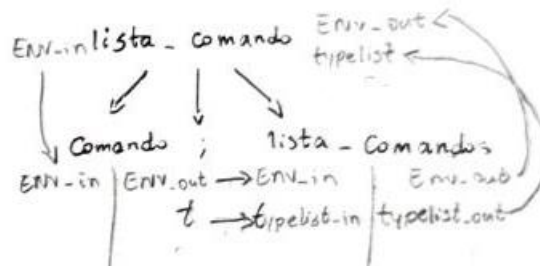 ENV_in lista_comando Env_out
typelist
Comando ; lista_Comandos
ENV_in ENV_out → ENV_in Env_out
t → typelist_in typelist_out